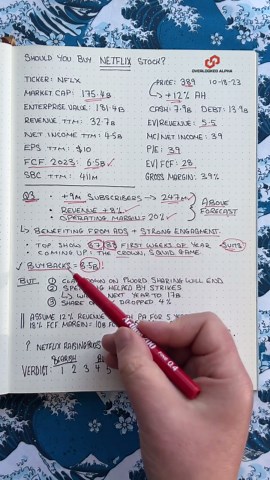 SHOULD YOU BUY NETFLIX STOCK?
OVERLOOKED ALPHA
TICKER: NFLX
PRICE: 389 10-18-23
MARKET CAP: 175.4B
→ +12% AH
ENTERPRISE VALUE: 181.4B
CASH: 7.9B DEBT: 13.9B
REVENUE TTM: 32.7B
EV/REVENUE: 5.5
NET INCOME TTM: 4.5B
MC/NET INCOME: 39
EPS TTM: $10
P/E: 39
FCF 2023: 6.5B ✓
EV/FCF: 28
SBC TTM: 411M
GROSS MARGIN: 39%
Q3 • +9M SUBSCRIBERS → 247M
• REVENUE +8%
• OPERATING MARGIN: 20%
ABOVE FORECAST
↳ BENEFITING FROM ADS + STRONG ENGAGEMENT.
• TOP SHOW 37/38 FIRST WEEKS OF YEAR
"SUITS"
• COMING UP: THE CROWN, SQUID GAME.
✓ BUYBACKS =
BUT ① DOWN ON PWORD SHARING WILL END
② SPENDING HELPED BY STRIKES
↳ NEXT YEAR TO 17B
③ SHARE DROPPED 4%
ASSUME 12% REVENUE PA FOR 5
18% FCF MARGIN = 10B FO
? NETFLIX RAISING
BEARISH
VERDICT: 1 2 3 4 5